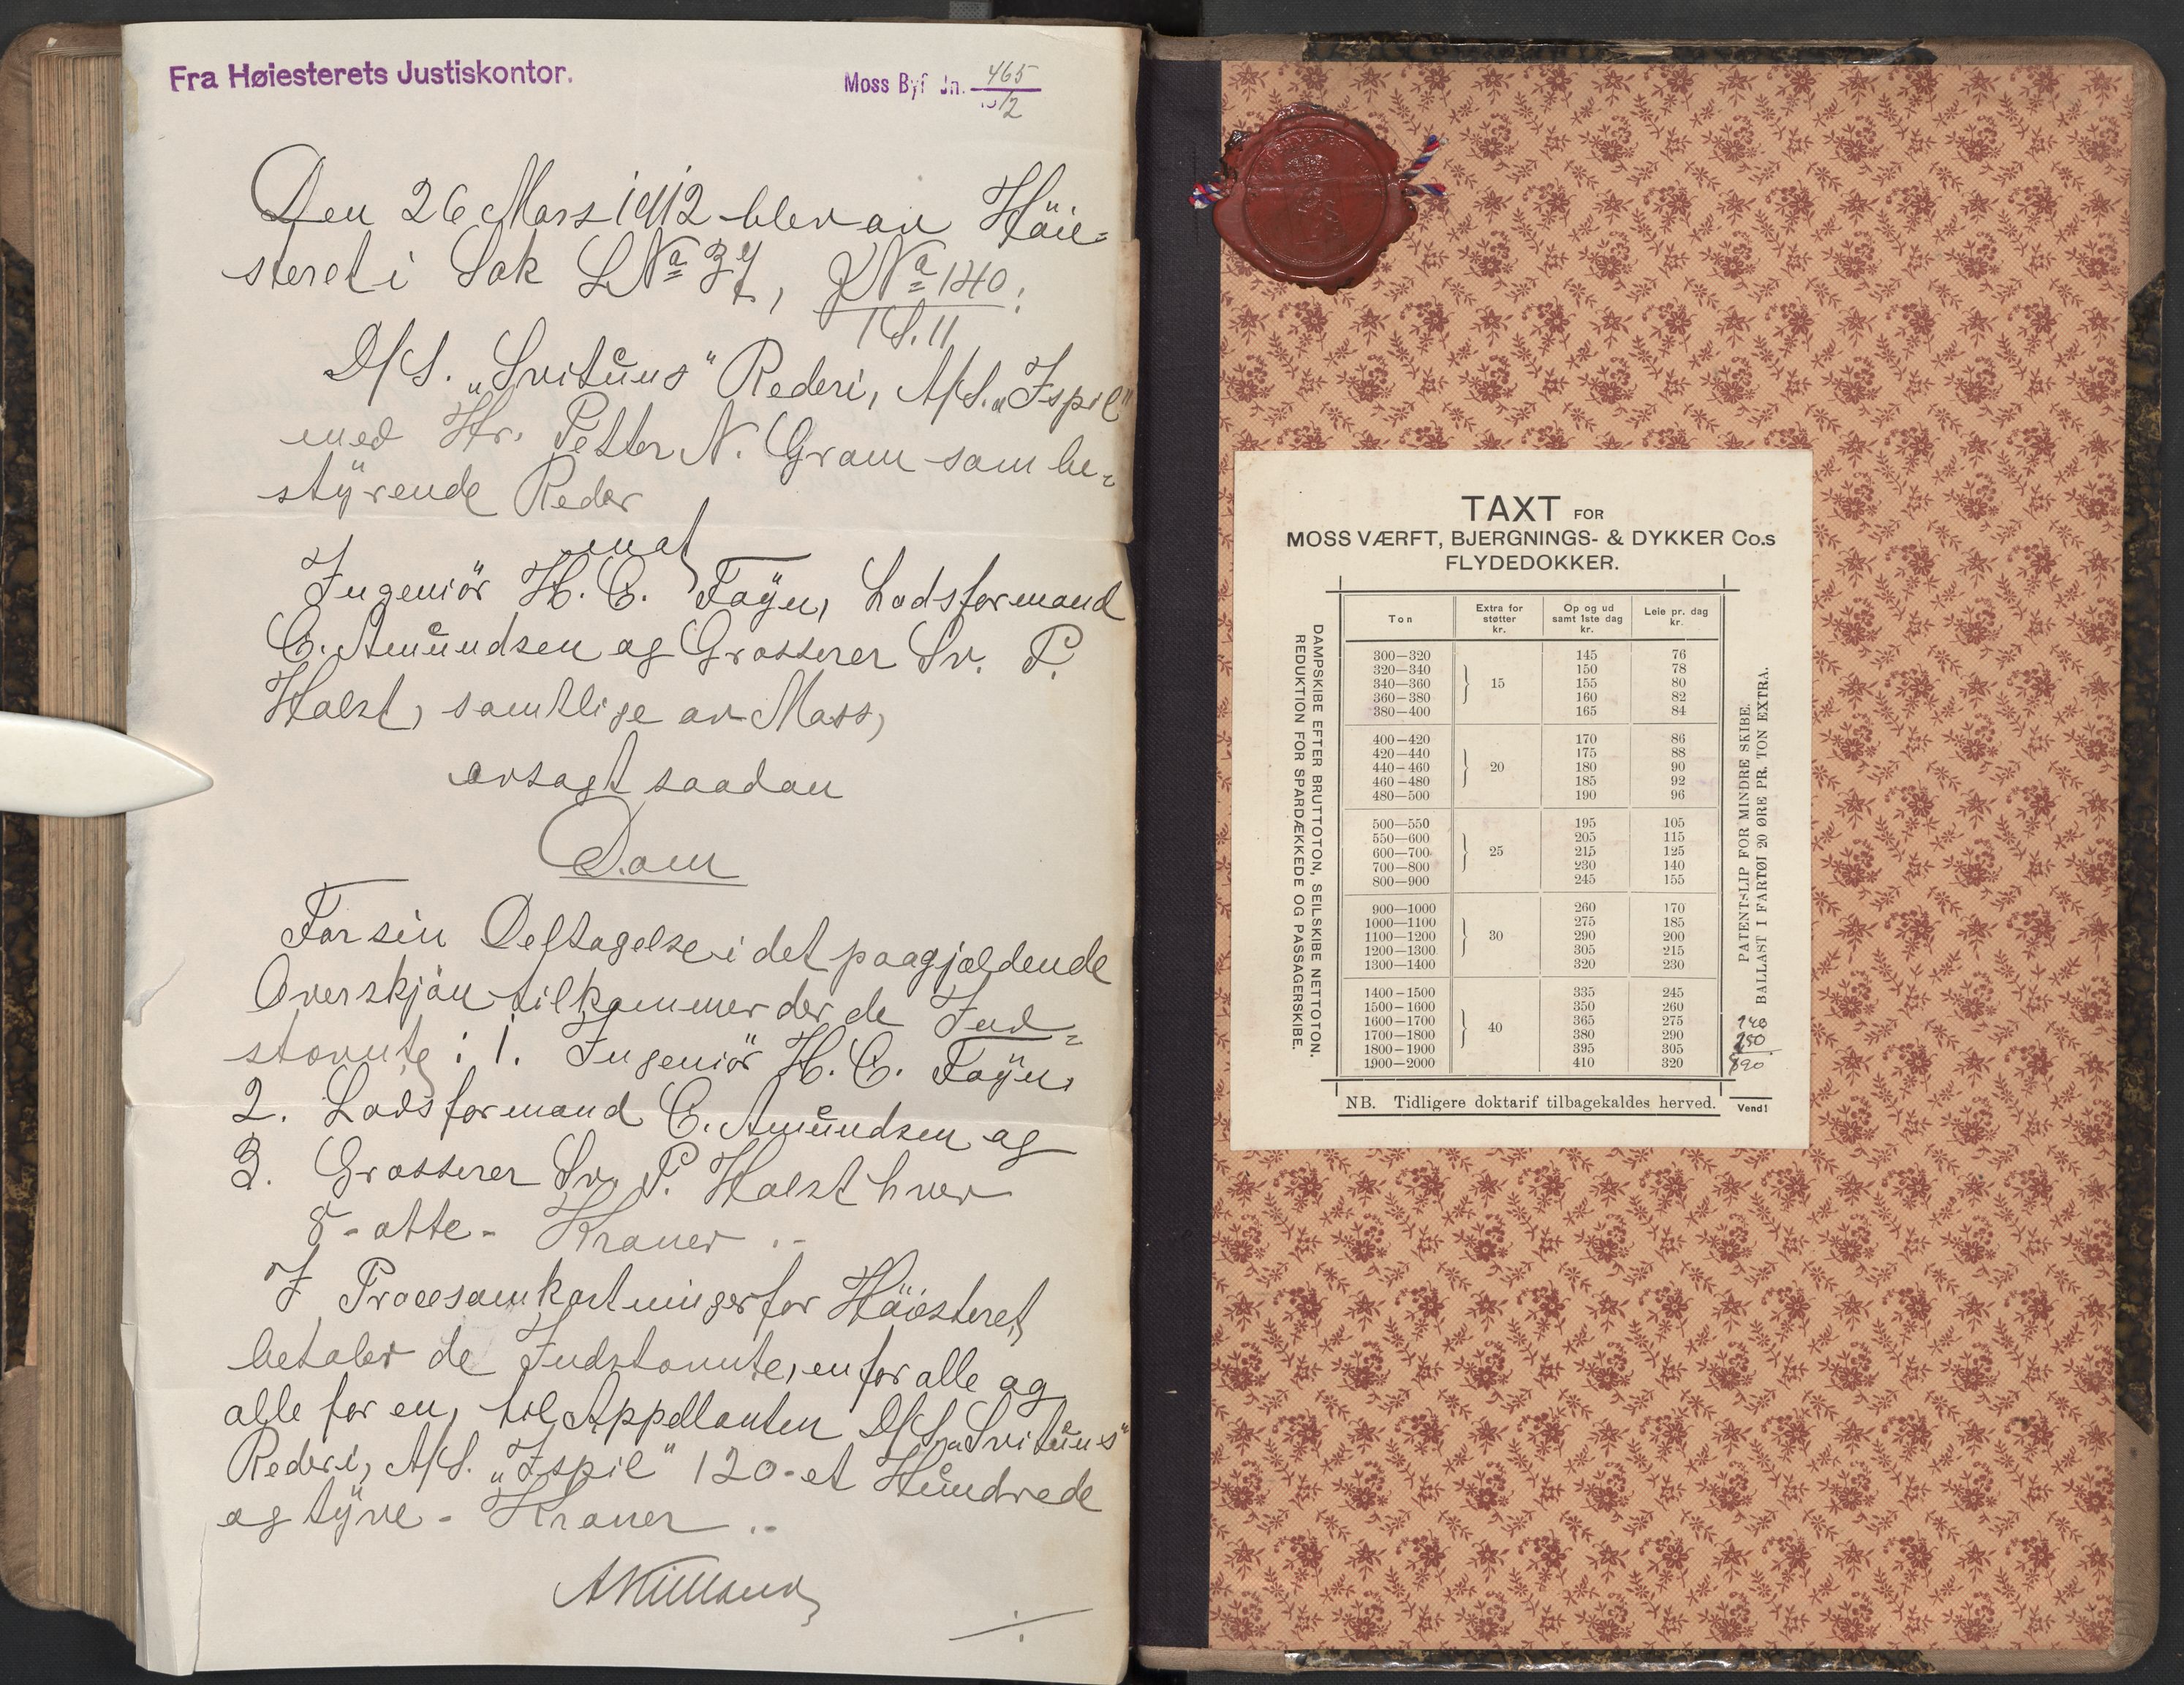 Fra Høiesterets Justiskontor.
Moss Byf Jn. 465
1912
Den 26 Mars 1912 blev av Höie-
steret i Sak LNo 37,
No 140
D/S. „Svithuns" Rederi, A/S. „Ispil"
med Hr. Petter N. Gram som be-
styrende Reder
mot
Ingeniör H. C. Föyn, Lodsformand
C. Amundsen og Grosserer Sv. P.
Holst, samtlige av Moss,
avsagt saadan
Dom
For sin Deltagelse i det paagjældende
Overskjön tilkommer der de Ind-
stevnte: 1. Ingeniör H. C. Föyn,
2. Lodsformand C. Amundsen og
3. Grosserer Sv. P. Holst hver
8 - otte - Kroner
I Procesomkostninger for Höiesteret
betaler de Indstevnte, en for alle og
alle for en, til Appellanten D/S. „Svithuns"
Rederi, A/S. „Ispil" 120 - et Hundrede
og tyve - Kroner
TAXT FOR
MOSS VÆRFT, BJERGNINGS- & DYKKER Co.s
FLYDEDOKKER.
DAMPSKIBE EFTER BRUTTOTON, SEILSKIBE NETTOTON.
REDUKTION FOR SPARDÆKKEDE OG PASSAGERSKIBE.
Ton Extra for støtter kr. Op og ud samt 1ste dag kr. Leie pr. dag kr.
300—320 145 76
320—340 150 78
340—360 15 155 80
360—380 160 82
380—400 165 84
400—420 170 86
420—440 175 88
440—460 20 180 90
460—480 185 92
480—500 190 96
500—550 195 105
550—600 205 115
600—700 25 215 125
700—800 230 140
800—900 245 155
900—1000 260 170
1000—1100 275 185
1100—1200 30 290 200
1200—1300 305 215
1300—1400 320 230
1400—1500 335 245
1500—1600 350 260
1600—1700 40 365 275
1700—1800 380 290
1800—1900 395 305
1900—2000 410 320
PATENTSLIP FOR MINDRE SKIBE.
BALLAST I FARTØI 20 ØRE PR. TON EXTRA.
NB. Tidligere doktarif tilbagekaldes herved.
Vend!